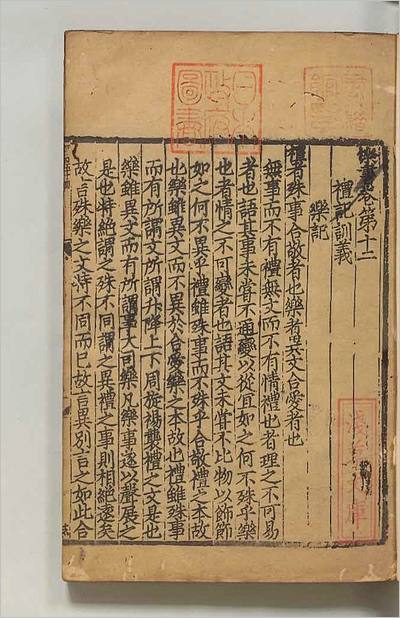 樂書卷第十二
禮記訓義
樂記
禮者殊事合敬者也樂者異文合愛者也
無事而不有禮無文而不有情禮也者理之不可易
者也語其事未嘗不通變以從宜如之何不殊乎樂
也者情之不可變者也語其文未嘗不比物以飾節
如之何不異乎禮雖殊事而不殊乎合敬禮之本故
也樂雖異文而不異於合愛樂之本故也禮雖殊事
而有所謂文所謂升降上下周旋裼襲禮之文是也
樂雖異文而有所謂事大司樂凡樂事遂以聲展之
是也特絕謂之殊不同謂之異禮之事則相絕遠矣
故言殊樂之文特不同而已故言異別言之如此合